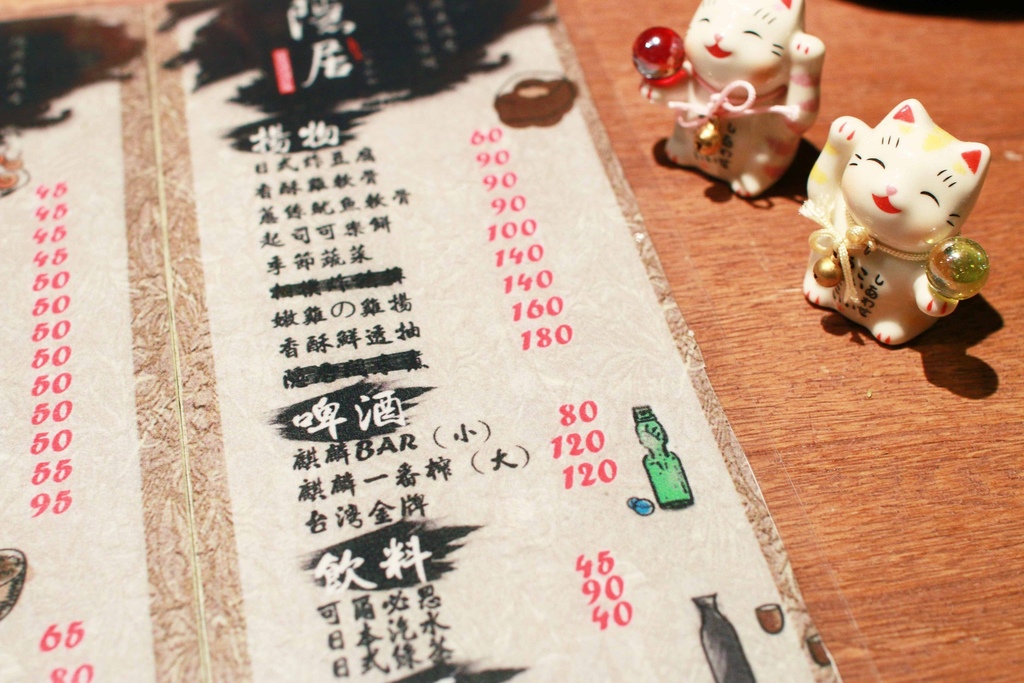 45
45
45
45
50
50
50
50
50
50
50
55
95
65
80
隱居
揚物
日式炸豆腐 60
香酥雞軟骨 90
蔥絲魷魚軟骨 90
起司可樂餅 90
季節蔬菜 100
140
嫩雞の雞揚 140
香酥鮮透抽 160
180
啤酒
麒麟BAR（小） 80
麒麟一番榨（大） 120
台灣金牌 120
飲料
可爾必思 45
日本汽水 90
日式綠茶 40